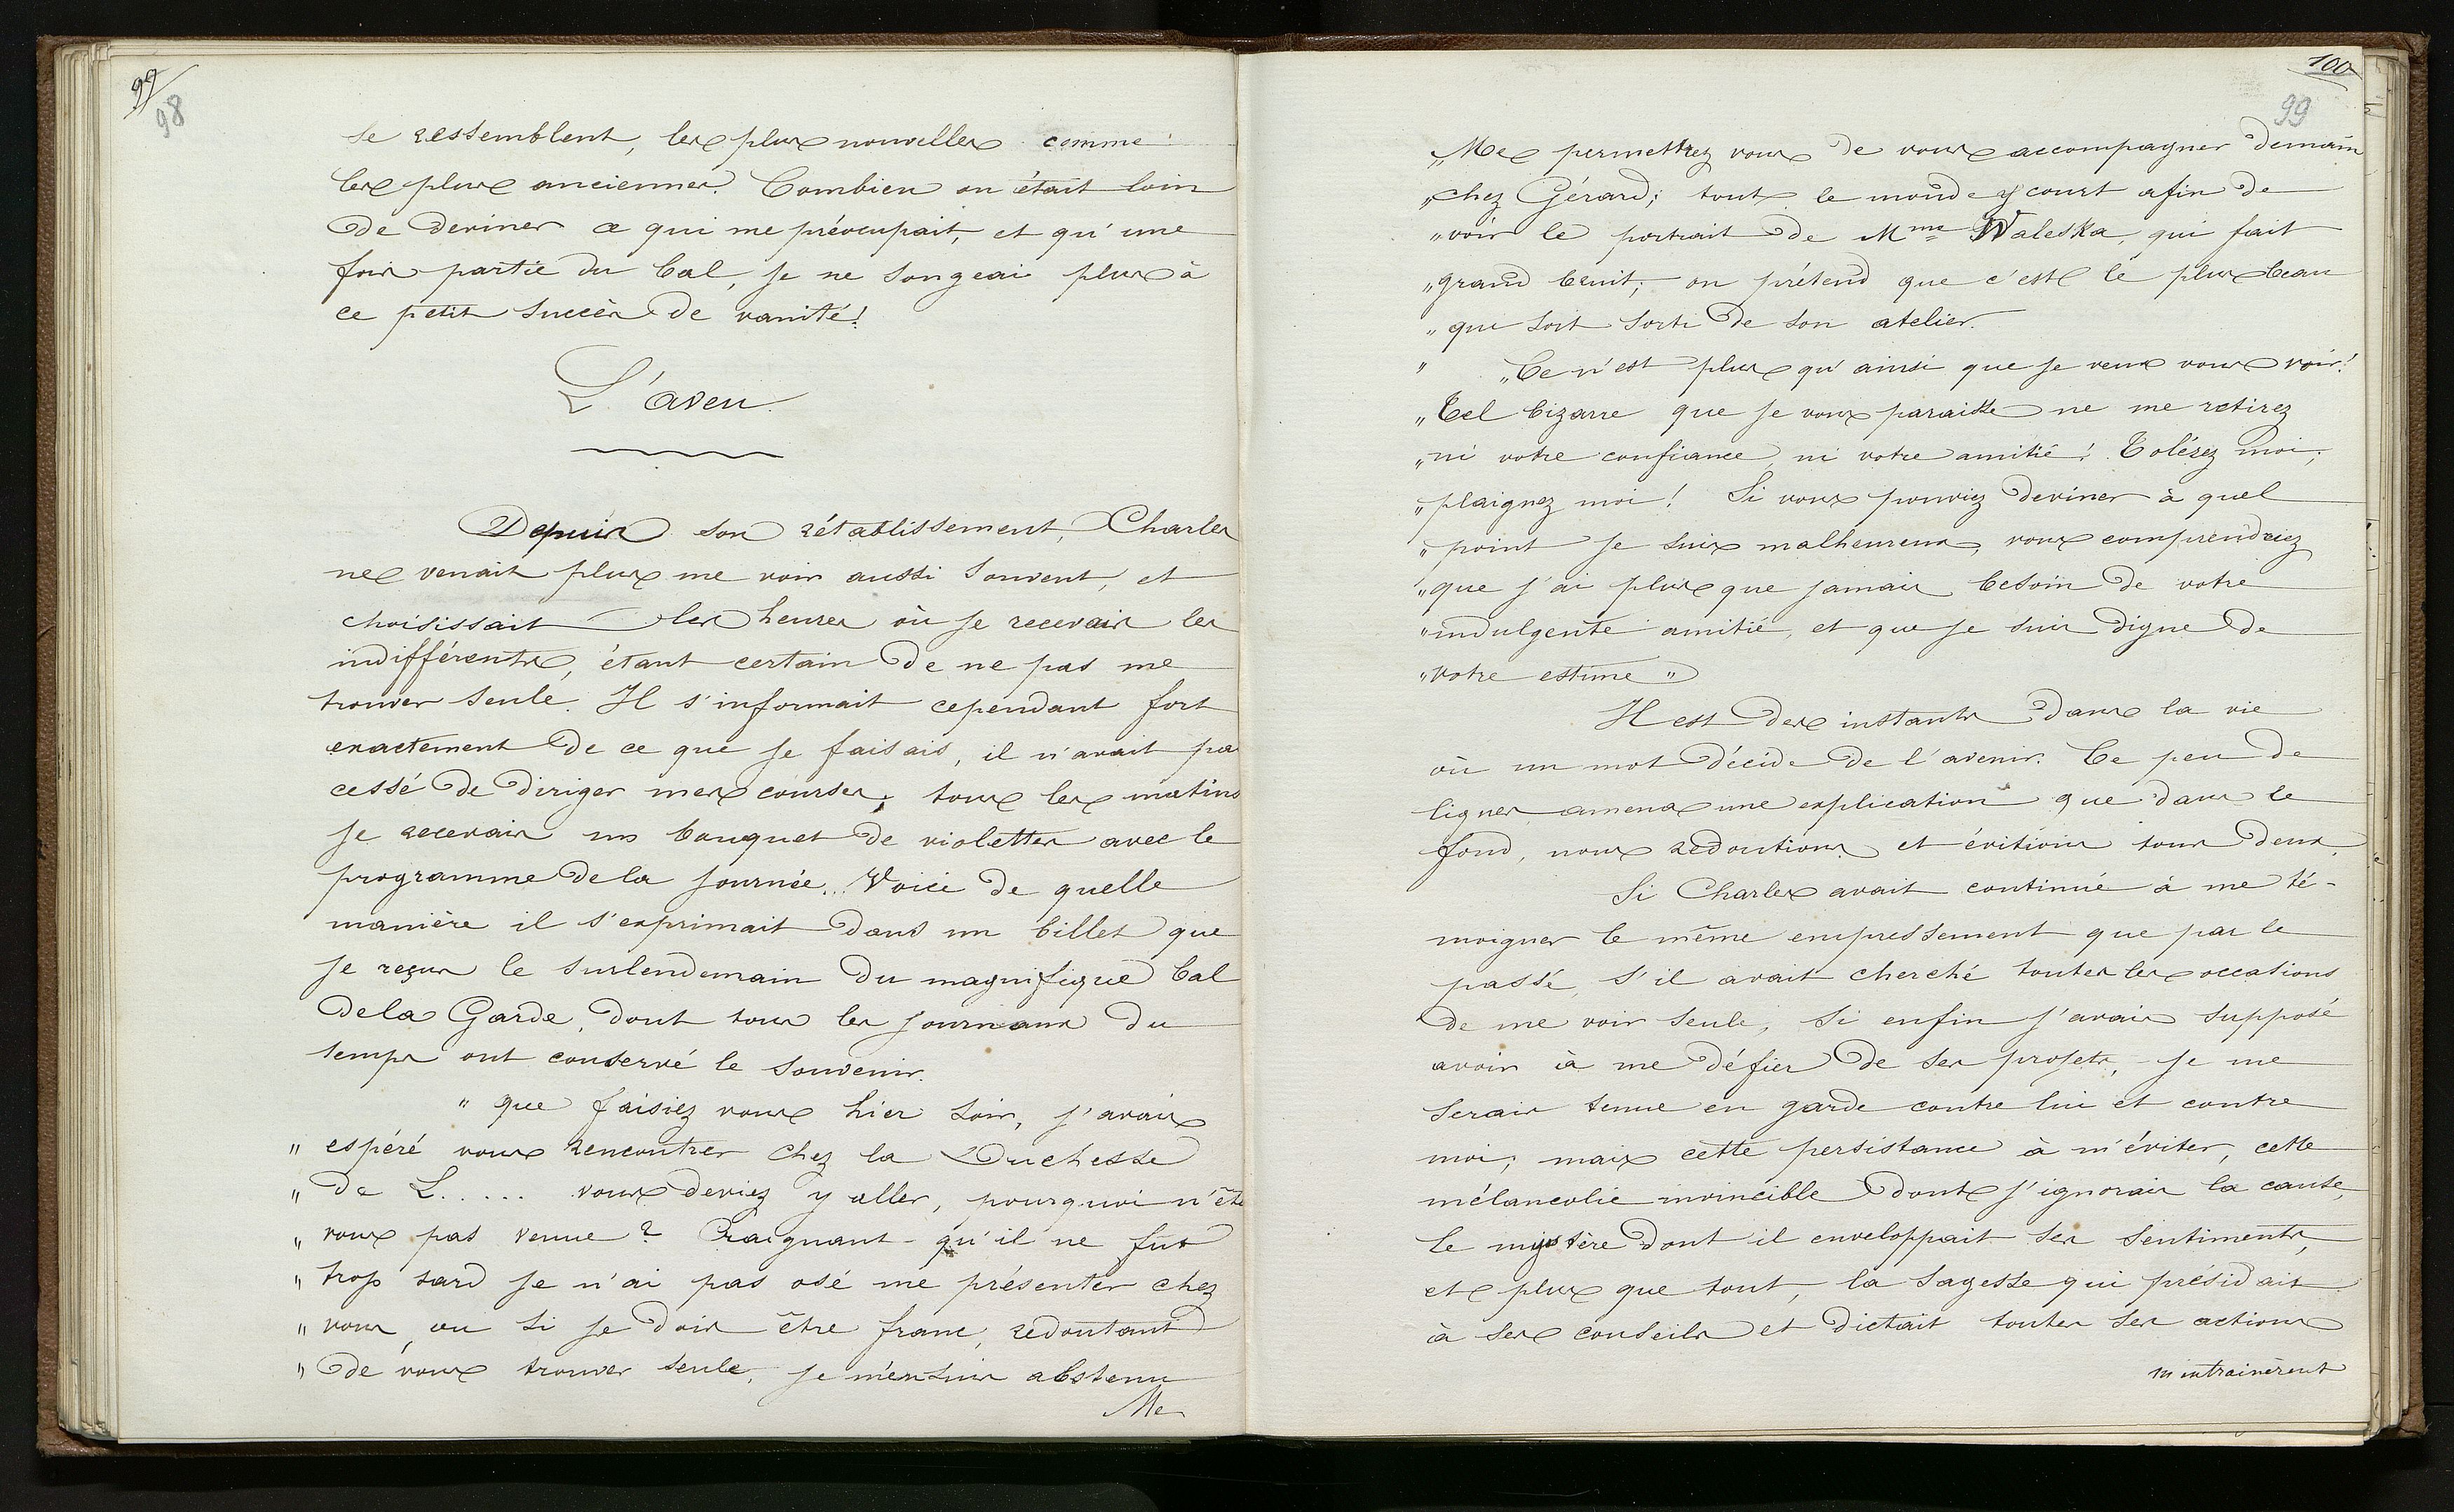 99
98
se ressemblent, les plus nouvelles comme
les plus anciennes. Combien on était loin
de deviner ce qui me préoccupait, et qu'une
fois partie du bal, je ne songeai plus à
ce petit succès de vanité!
L'aveu.
Depuis son rétablissement, Charles
ne venait plus me voir aussi souvent, et
choisissait les heures où je recevais les
indifférents, étant certain de ne pas me
trouver seule. Il s'informait cependant fort
exactement de ce que je faisais, il n'avait pas
cessé de diriger mes courses; tous les matins
je recevais un bouquet de violettes avec le
programme de la journée. Voici de quelle
manière il s'exprimait dans un billet que
je reçus le surlendemain du magnifique bal
de la Garde, dont tous les journaux du
temps ont conservé le souvenir.
" que faisiez vous hier soir, j'avais
" espéré vous rencontrer chez la Duchesse
" de L..... vous deviez y aller, pourquoi n'êtes
" vous pas venue? Craignant qu'il ne fut
" trop tard je n'ai pas osé me présenter chez
" vous, ou si je dois être franc, redoutant
" de vous trouver seule, je m'en suis abstenu
Me
100
99
"Me permettrez vous de vous accompagner demain
"chez Gérard; tout le monde y court afin de
"voir le portrait de Mme Waleska, qui fait
"grand bruit; on prétend que c'est le plus beau
"qui soit sorti de son atelier.
" "Ce n'est plus qu'ainsi que je veux vous voir!
"Tel bizarre que je vous paraisse ne me retirez
"ni votre confiance, ni votre amitié! Tolérez moi,
"plaignez moi! Si vous pouviez deviner à quel
"point je suis malheureux, vous comprendriez
"que j'ai plus que jamais besoin de votre
"indulgente amitié, et que je suis digne de
"votre estime"
Il est des instants dans la vie
où un mot décide de l'avenir. Ce peu de
lignes amena une explication que dans le
fond, nous redoutions et évitions tous deux.
Si Charles avait continué à me té-
moigner le même empressement que par le
passé, s'il avait cherché toutes les occasions
de me voir seule, si enfin j'avais supposé
avoir à me défier de ses projets, je me
serais tenue en garde contre lui et contre
moi; mais cette persistance à m'éviter, cette
mélancolie invincible dont j'ignorais la cause,
le mystère dont il enveloppait ses sentiments,
et plus que tout, la sagesse qui présidait
à ses conseils et dictait toutes ses actions
m'intrainèrent